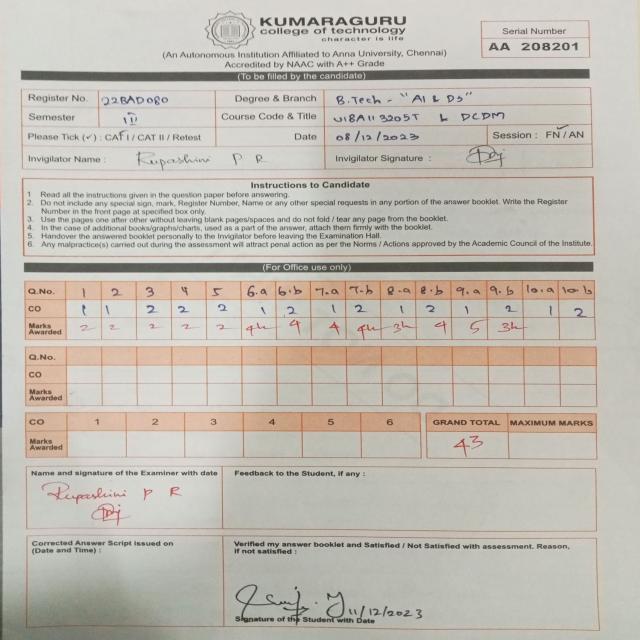 KUMARAGURU
college of technology
character is life
(An Autonomous Institution Affiliated to Anna University, Chennai)
Accredited by NAAC with A++ Grade
Serial Number
AA 208201
(To be filled by the candidate)
Register No. 22BAD080 Degree & Branch B.Tech - "AI & DS"
Semester III Course Code & Title U18AII3205T & DCDM
Please Tick (✓) : CAT I / CAT II / Retest Date 08/12/2023 Session : FN / AN
Invigilator Name : Rupashini P R Invigilator Signature :
Instructions to Candidate
1 Read all the instructions given in the question paper before answering.
2. Do not include any special sign, mark, Register Number, Name or any other special requests in any portion of the answer booklet. Write the Register
Number in the front page at specified box only.
3. Use the pages one after other without leaving blank pages/spaces and do not fold / tear any page from the booklet.
4. In the case of additional books/graphs/charts, used as a part of the answer, attach them firmly with the booklet.
5. Handover the answered booklet personally to the Invigilator before leaving the Examination Hall.
6. Any malpractice(s) carried out during the assessment will attract penal action as per the Norms / Actions approved by the Academic Council of the Institute.
(For Office use only)
Q.No. 1 2 3 4 5 6.a 6.b 7.a 7.b 8.a 8.b 9.a 9.b 10.a 10.b
CO 1 1 2 2 2 1 2 1 2 1 2 1 2 1 2
Marks Awarded 2 2 2 2 2 4½ 4 4 4½ 3½ 4 5 3½
Q.No.
CO
Marks Awarded
CO 1 2 3 4 5 6 GRAND TOTAL MAXIMUM MARKS
Marks Awarded 43
Name and signature of the Examiner with date Feedback to the Student, if any :
Rupashini P R
Corrected Answer Script issued on
(Date and Time) :
Verified my answer booklet and Satisfied / Not Satisfied with assessment. Reason,
if not satisfied :
11/12/2023
Signature of the Student with Date